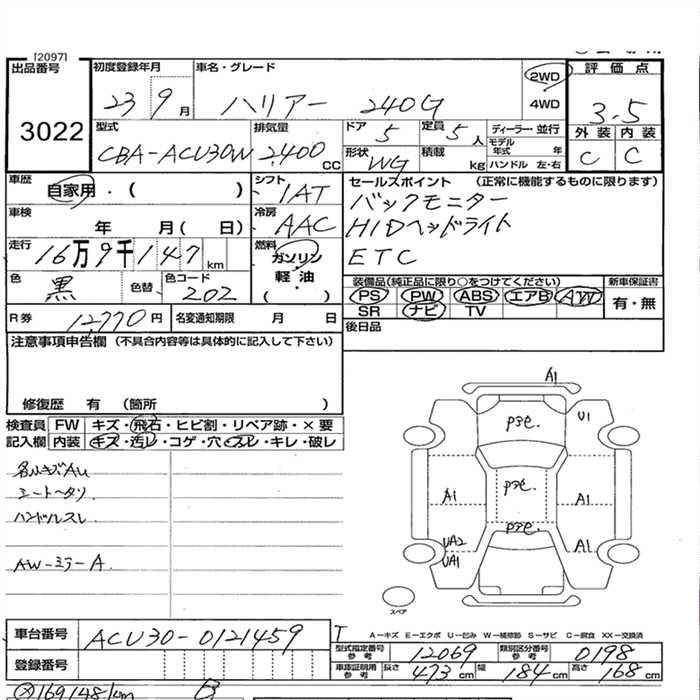 [2097]
出品番号
3022
初度登録年月
23 9月
車名・グレード
ハリアー 240G
2WD
4WD
評価点
3.5
外装 内装
C C
型式
CBA-ACU30W
排気量
2,400 CC
ドア 5
定員 5人
ディーラー・並行
モデル年式 年
形状 WG
積載 kg
ハンドル 左・右
車歴
自家用・( )
シフト
IAT
セールスポイント (正常に機能するものに限ります)
バックモニター
HIDヘッドライト
ETC
車検
年 月( 日)
冷房
AAC
走行
16万9千147km
燃料
ガソリン
軽・油
( )
色
黒
色替
色コード
202
装備品(純正品に限り○をつけてください)
新車保証書
PS PW ABS エアB AW
SR ナビ TV
有・無
R券 12770円
名変通知期限 月 日
後日品
注意事項申告欄 (不具合内容等は具体的に記入して下さい)
修復歴 有 (箇所 )
検査員 FW キズ・飛石・ヒビ割・リペア跡・×要
記入欄 内装 キズ・汚レ・コゲ・穴・スレ・キレ・破レ
シートヘタリ
ハンドルスレ
AW-ミラーA
A1
U1
A1
A1
UA2
UA1
A1
スペア
A-キズ E-エクボ U-凹み W-補修跡 S-サビ C-腐食 XX-交換済
車台番号
ACU30-0121459
登録番号
型式指定番号 参考 12069
類別区分番号 参考 0198
車庫証明用 参考 長さ 473cm 幅 184cm 高さ 168cm
169148km